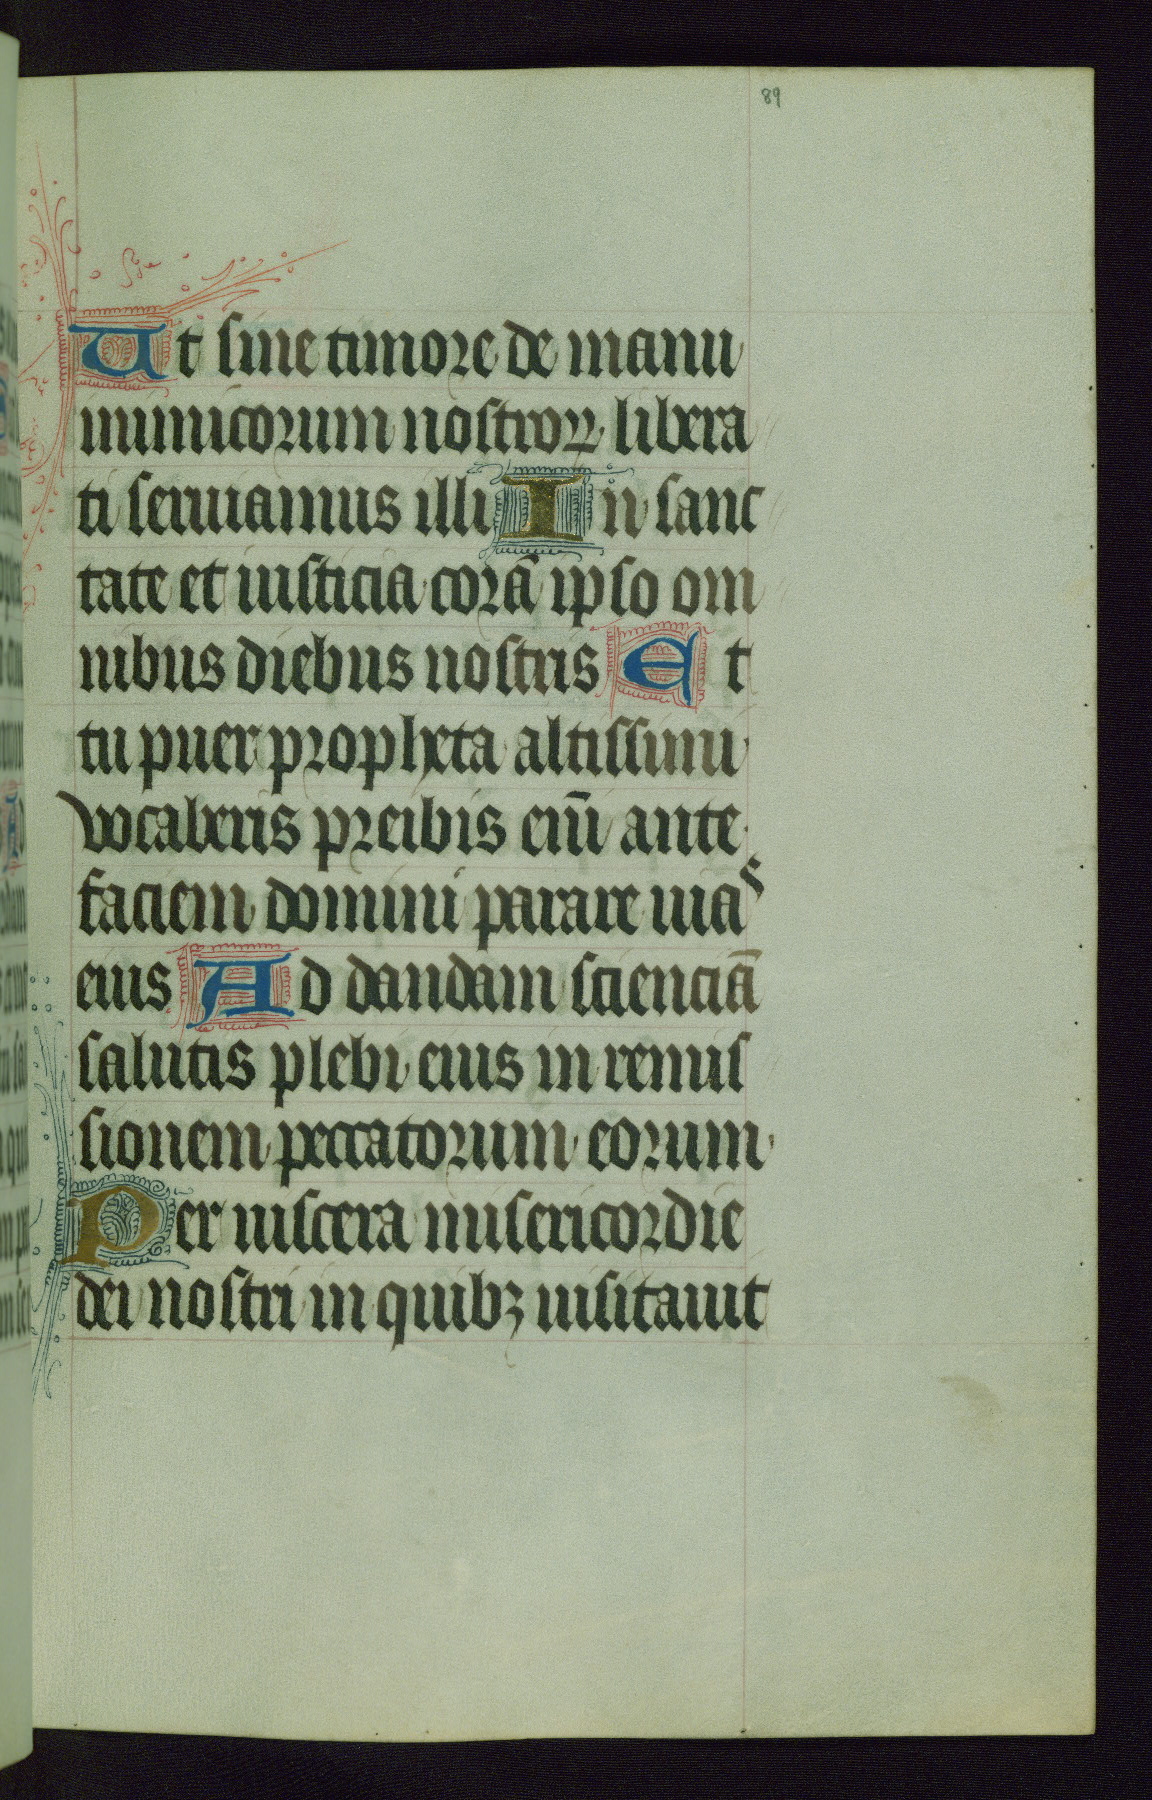 89
Ut sine timore de manu
inimicorum nostroꝝ libera
ti seruiamus illi In sanc
tate et iusticia corā ipso om
nibus diebus nostris Et
tu puer propheta altissimi
vocaberis preibis eni̅ ante
faciem domini parare uias
eius Ad dandam scienciā
salutis plebi eius in remis
sionem peccatorum eorum
Per uiscera misericordie
dei nostri in quibꝫ uisitauit